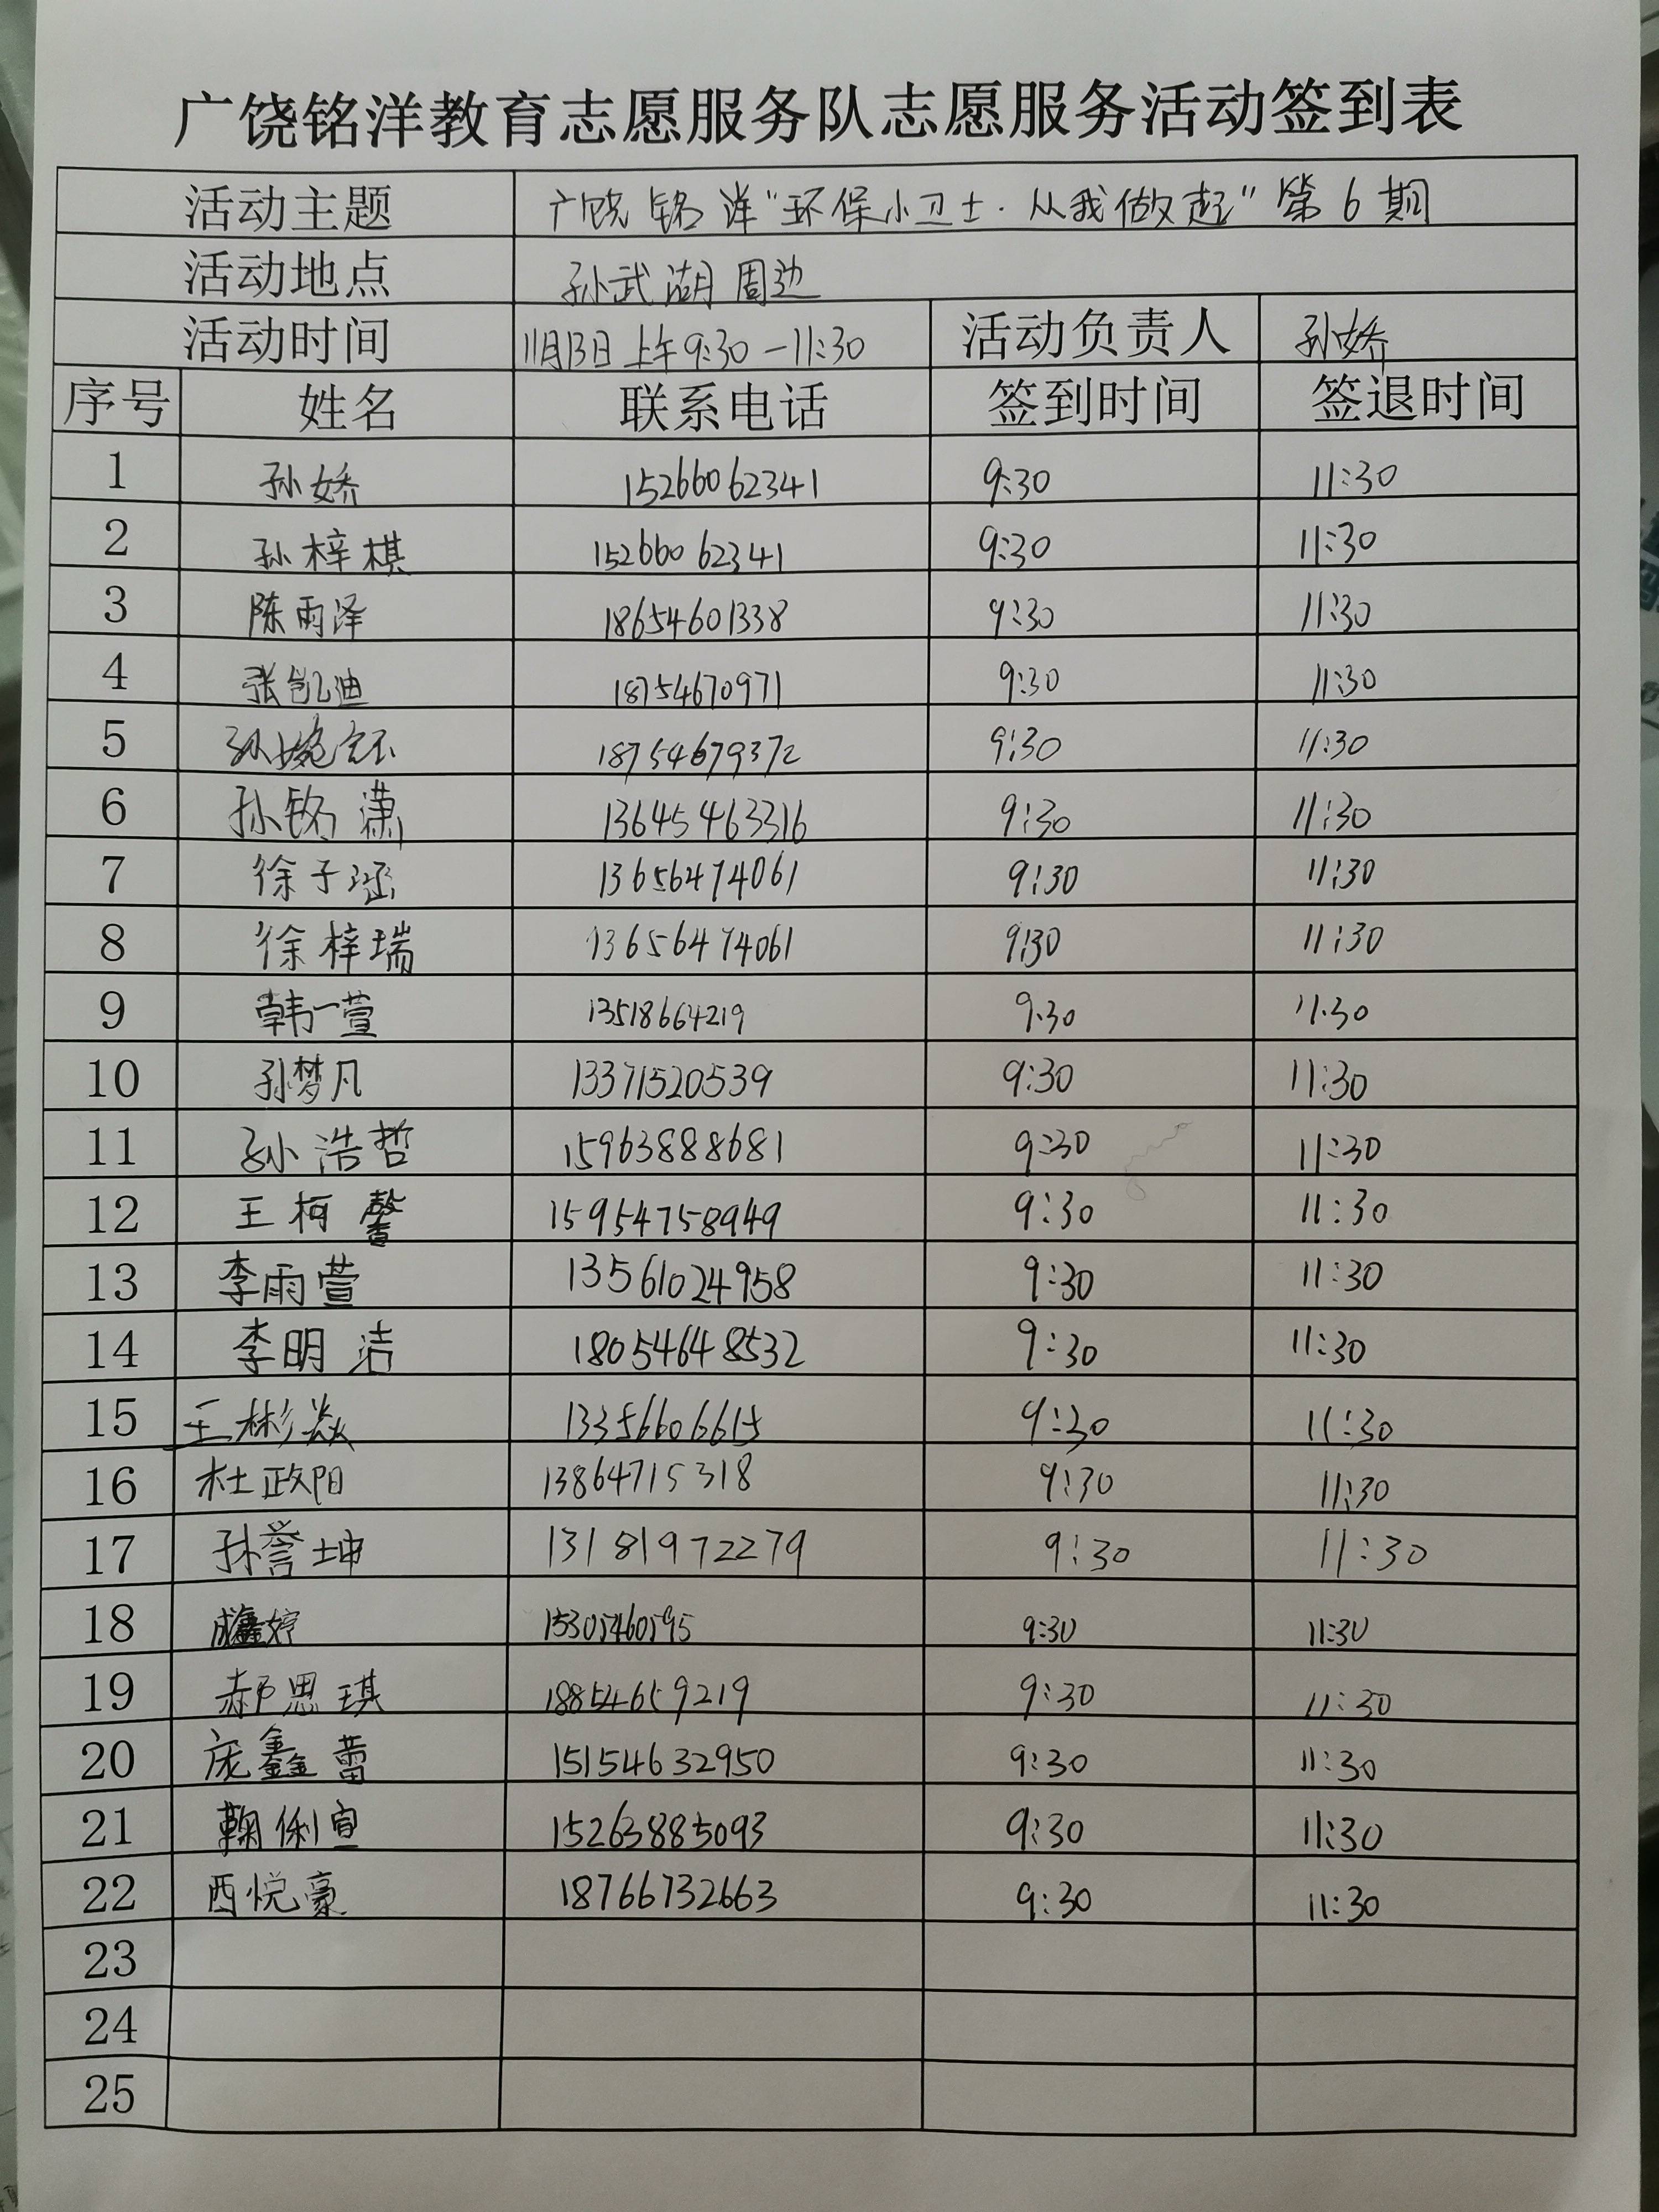 广饶铭洋教育志愿服务队志愿服务活动签到表
活动主题 广饶铭洋“环保小卫士·从我做起”第6期
活动地点 孙武湖周边
活动时间 11月13日上午9:30-11:30 活动负责人 孙娇
序号 姓名 联系电话 签到时间 签退时间
1 孙娇 15266062341 9:30 11:30
2 孙梓棋 15266062341 9:30 11:30
3 陈雨泽 18654601338 9:30 11:30
4 张凯迪 18754670971 9:30 11:30
5 孙婉 18754679372 9:30 11:30
6 孙铭潇 13645463316 9:30 11:30
7 徐子涵 13656474061 9:30 11:30
8 徐梓瑞 13656474061 9:30 11:30
9 韩一萱 13518664219 9:30 11:30
10 孙梦凡 13371520539 9:30 11:30
11 孙浩哲 15963888681 9:30 11:30
12 王柯馨 15954758949 9:30 11:30
13 李雨萱 13561024958 9:30 11:30
14 李明洁 18054648532 9:30 11:30
15 王彬焱 13356606615 9:30 11:30
16 杜政阳 13864715318 9:30 11:30
17 孙誉坤 13181972279 9:30 11:30
18 成鑫婷 15305460595 9:30 11:30
19 郝思琪 18854659219 9:30 11:30
20 庞鑫蕾 15154632950 9:30 11:30
21 鞠俐宣 15263885093 9:30 11:30
22 西悦豪 18766732663 9:30 11:30
23
24
25